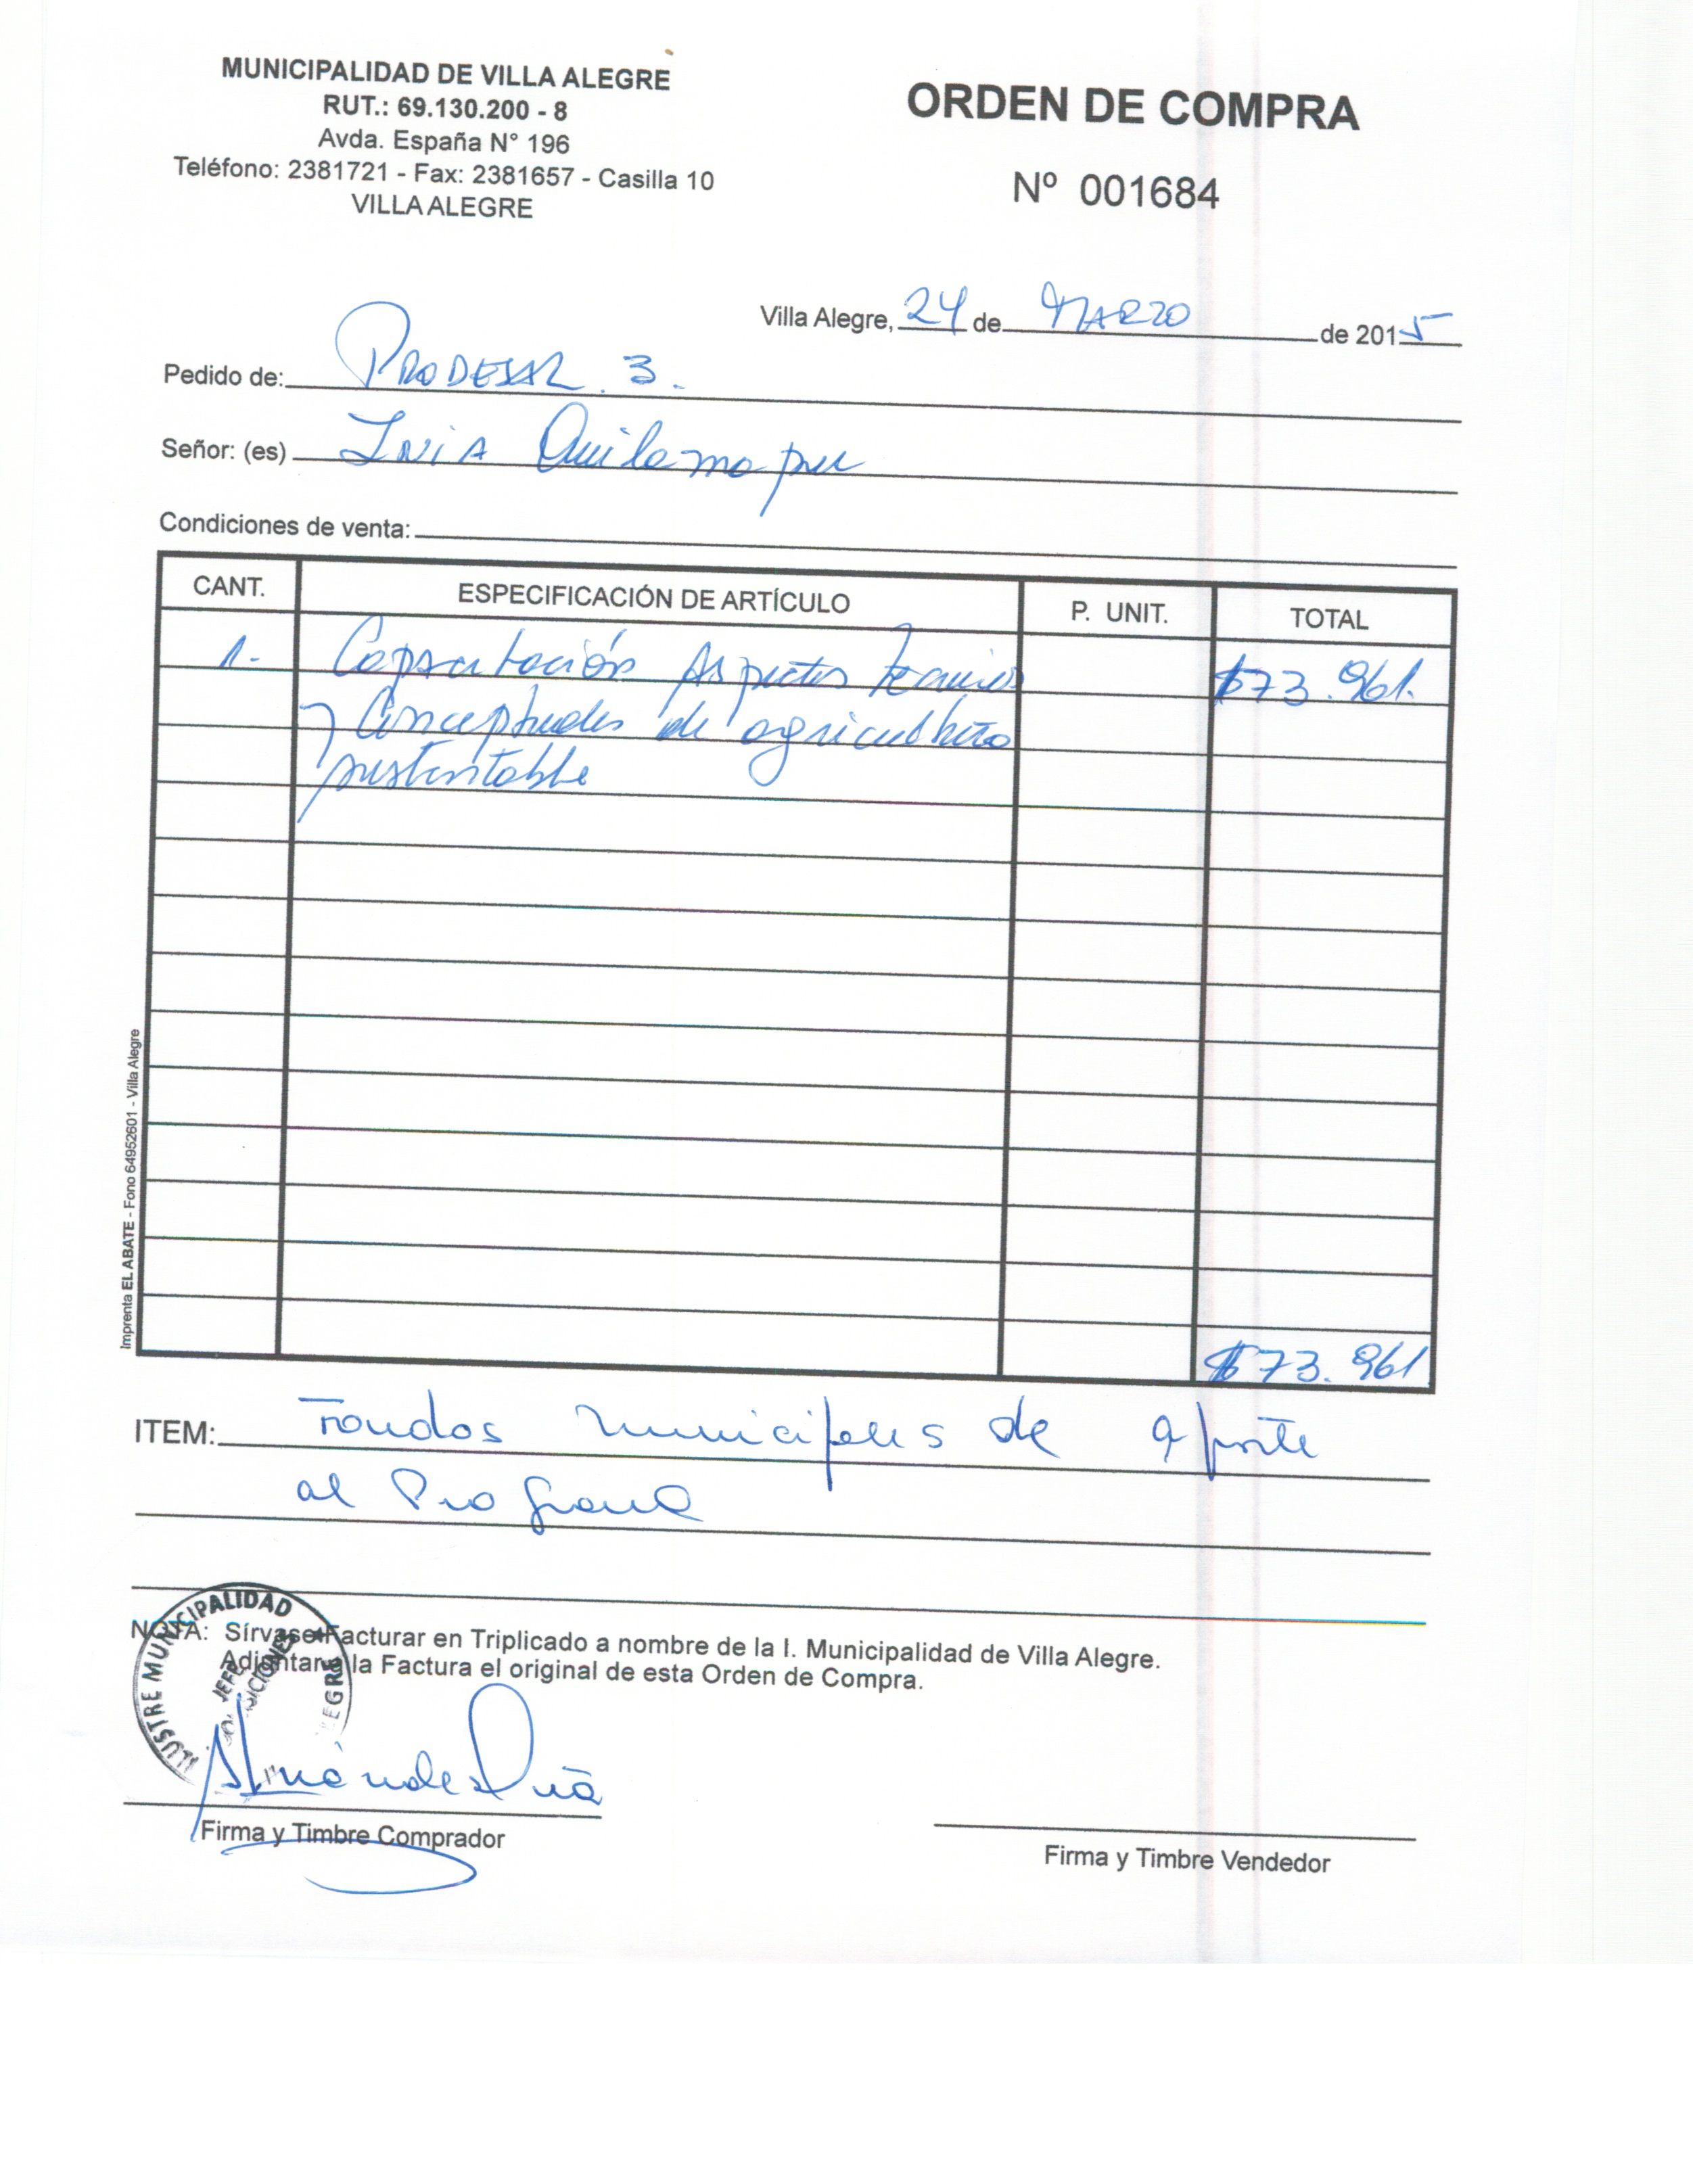 MUNICIPALIDAD DE VILLA ALEGRE
RUT.: 69.130.200 - 8
Avda. España N° 196
Teléfono: 2381721 - Fax: 2381657 - Casilla 10
VILLA ALEGRE
ORDEN DE COMPRA
Nº 001684
Villa Alegre, 24 de MARZO de 2015
Pedido de: PRODESAL 3.
Señor: (es) INIA Quilamapu
Condiciones de venta:
CANT. ESPECIFICACIÓN DE ARTÍCULO P. UNIT. TOTAL
1.- Capacitación Aspectos Tecnicos $73.961.
y Conceptuales de agricultura
sustentable
$73.961
ITEM: Fondos Municipales de aporte
al Programa
NOTA: Sírvase Facturar en Triplicado a nombre de la I. Municipalidad de Villa Alegre.
Adjuntar a la Factura el original de esta Orden de Compra.
ILUSTRE MUNICIPALIDAD
JEFE
Firma y Timbre Comprador
Firma y Timbre Vendedor
Imprenta EL ABATE - Fono 64952601 - Villa Alegre